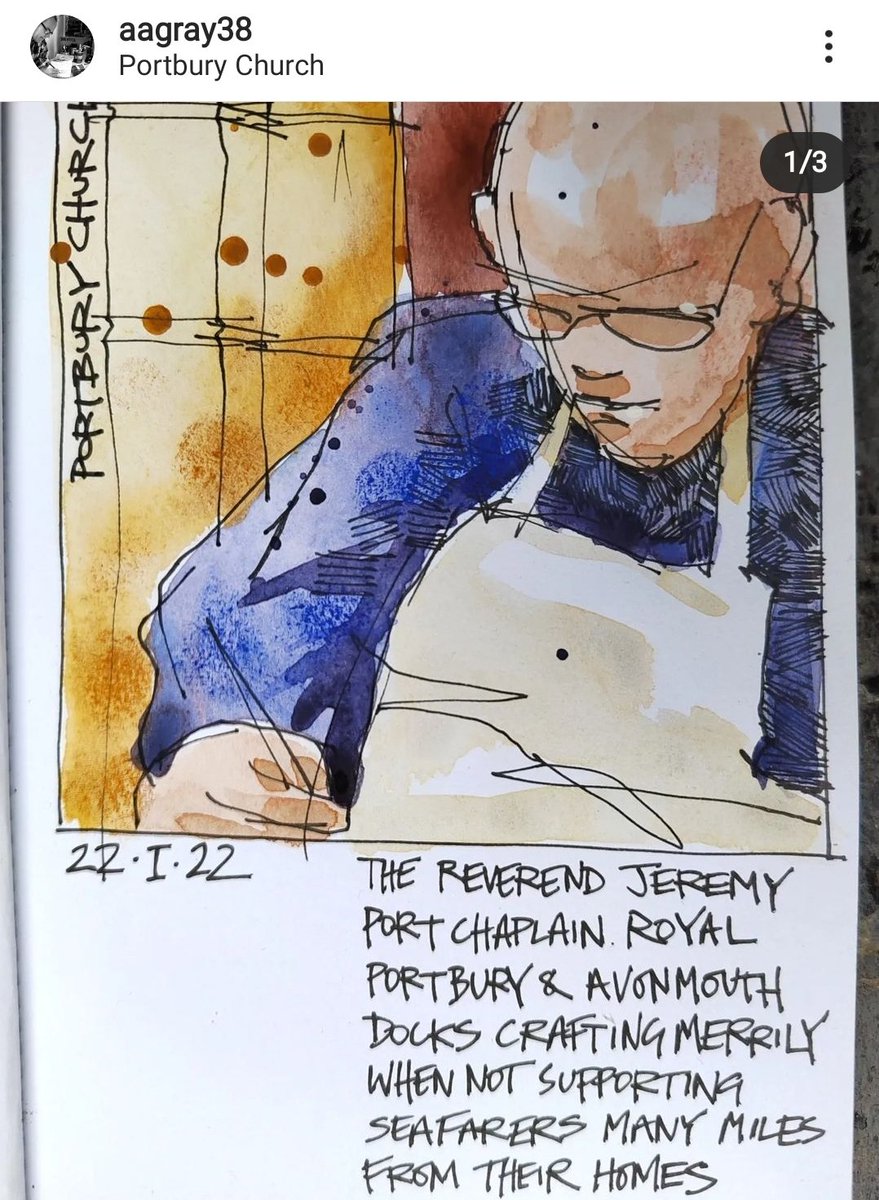 aagray38
Portbury Church
1/3
PORTBURY CHURCH
22·I·22
THE REVEREND JEREMY
PORT CHAPLAIN. ROYAL
PORTBURY & AVONMOUTH
DOCKS CRAFTING MERRILY
WHEN NOT SUPPORTING
SEAFARERS MANY MILES
FROM THEIR HOMES